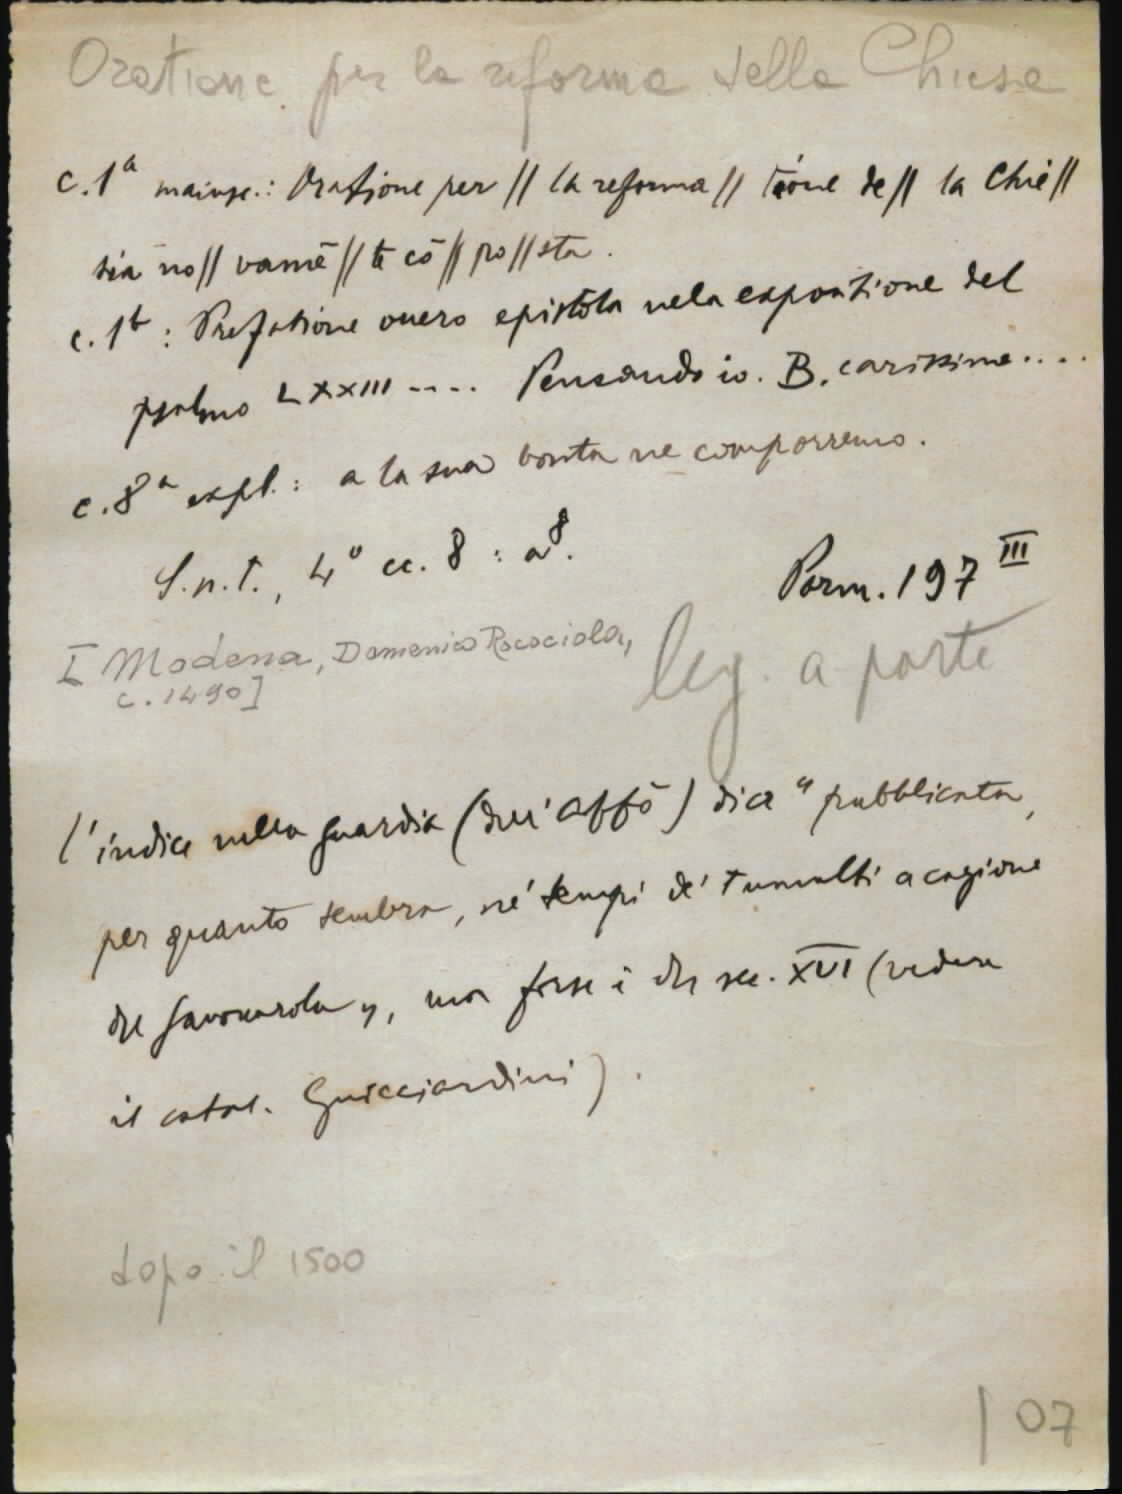 Oratione per la reforma della Chiesa
c. 1ᵃ maiusc.: Oratione per // la reforma // tiōne de // la Chie //
sia no // vamē // te cō // po // sta.
c. 1ᵇ : Prefatione overo epistola nela expositione del
psalmo LXXIII .... Pensando io. B. carissime ....
c. 8ᵃ expl. : a la sua bonta ne comporremo.
S.n.t., 4º cc. 8 : a⁸.
Parm. 197 III
[Modena, Domenico Rococciola,
c. 1490]
leg. a parte
l'indice nella guardia (dell'Affò) dice "pubblicata,
per quanto sembra, ne' tempi de' tumulti a cagione
del Savonarola", ma forse è del sec. XVI (vedere
il catal. Guicciardini).
dopo il 1500
| 07